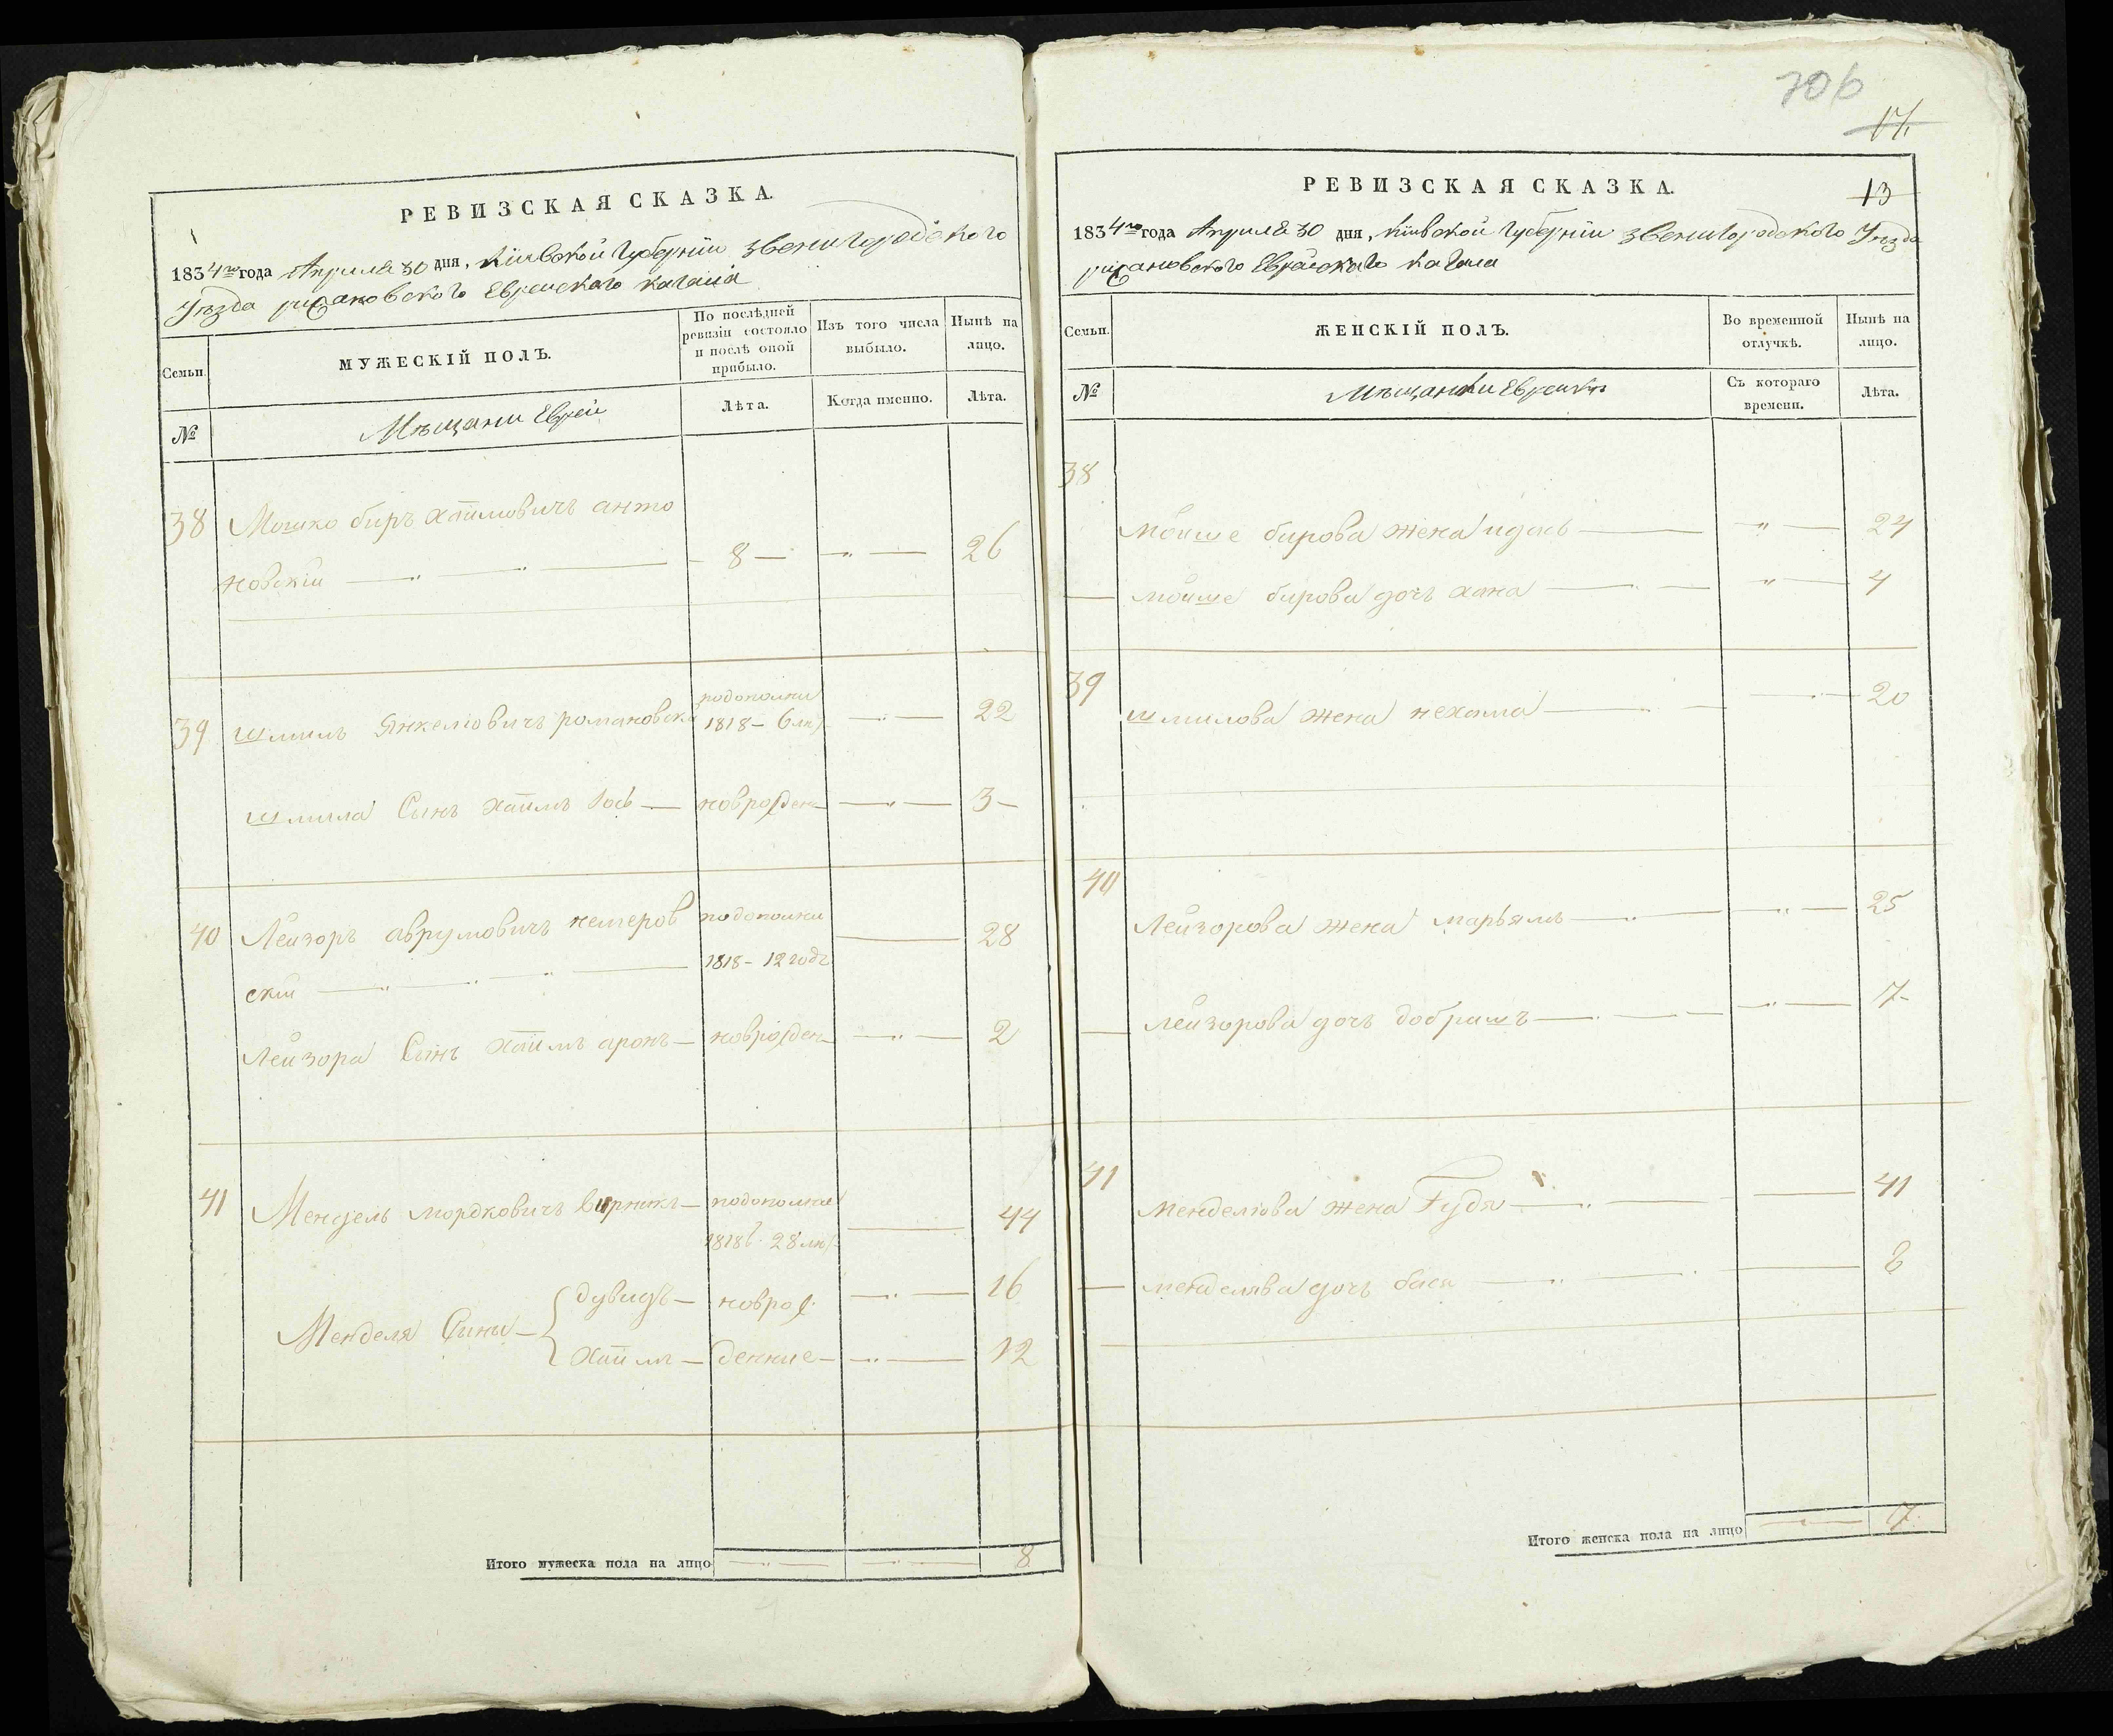 РЕВИЗСКАЯ СКАЗКА.
1834го года Апреля 30 дня, Кіивской Губерніи Звенигородского
Уезда рижановского Еврейского кагала
Семьи.
МУЖЕСКІЙ ПОЛЪ.
По послѣдней ревизіи состояло и послѣ оной прибыло.
Изъ того числа выбыло.
Нынѣ на лицо.
№
Мѣщани Евреи
Лѣта.
Когда именно.
Лѣта.
38 Мошко биръ хаимовичъ анто
новскій 8 26
39 шмиль Янкеліовичъ романовски подополни 1818 - 6 лѣт 22
шмила Сынъ хаимъ Iось новрожден 3
40 Лейзоръ аврумовичъ немеров подополни 28
скій 1818 - 12 годъ
Лейзора Сынъ хаимъ аронъ новрожден 2
41 Мендель мордковичъ вирникъ подополни 44
1818 г. 28 лѣт
Менделя Сыны
дувидъ новрож 16
хаимъ денние 12
Итого мужеска пола на лицо 8
70б
17.
13
РЕВИЗСКАЯ СКАЗКА.
1834го года Апреля 30 дня, Кіивской Губерніи Звенигородского Уезда
рижановского Еврейского кагала
Семьи.
ЖЕНСКІЙ ПОЛЪ.
Во временной отлучкѣ.
Нынѣ на лицо.
№
Мѣщанки Еврейки
Съ котораго времени.
Лѣта.
38
мойше бирова жена идась 24
мойше бирова дочъ хана 4
39
шмилова жена нехама 20
40
Лейзорова жена марьямъ 25
Лейзорова дочъ добришъ 7
41
менделіова жена Гудя 41
менделява дочъ бася 8
Итого женска пола на лицо 7